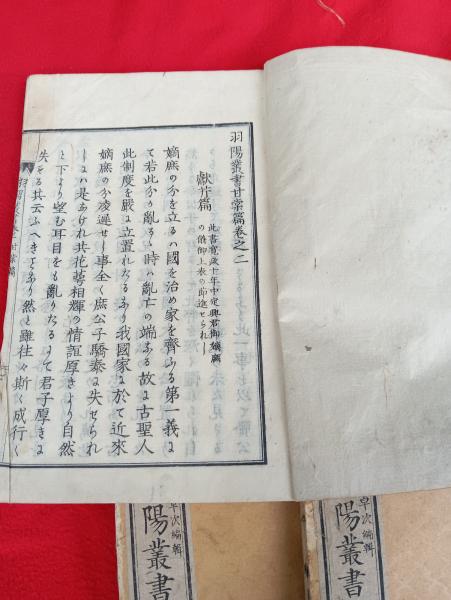 羽陽叢書甘棠篇卷之二
獻芹篇
此書寛政十年中定興君御嫡廣
の儀御上表の節進せられし
嫡庶の分を立るハ國を治め家を齊ふる第一義に
て若此分の亂るゝ時ハ亂亡の端ふる故に古聖人
此制度を嚴に立置れたるなり我國家に於て近來
嫡庶の分凌遲せし事全く庶公子驕泰に失せられ
しにハ是なけれ共花萼相輝の情誼厚きより自然
と下より望む耳目をも亂りたるにて君子厚きに
失するゝ其云ふへきにあり然と雖往々斯く成行く
早次編輯
陽叢書
早次編輯
陽叢書